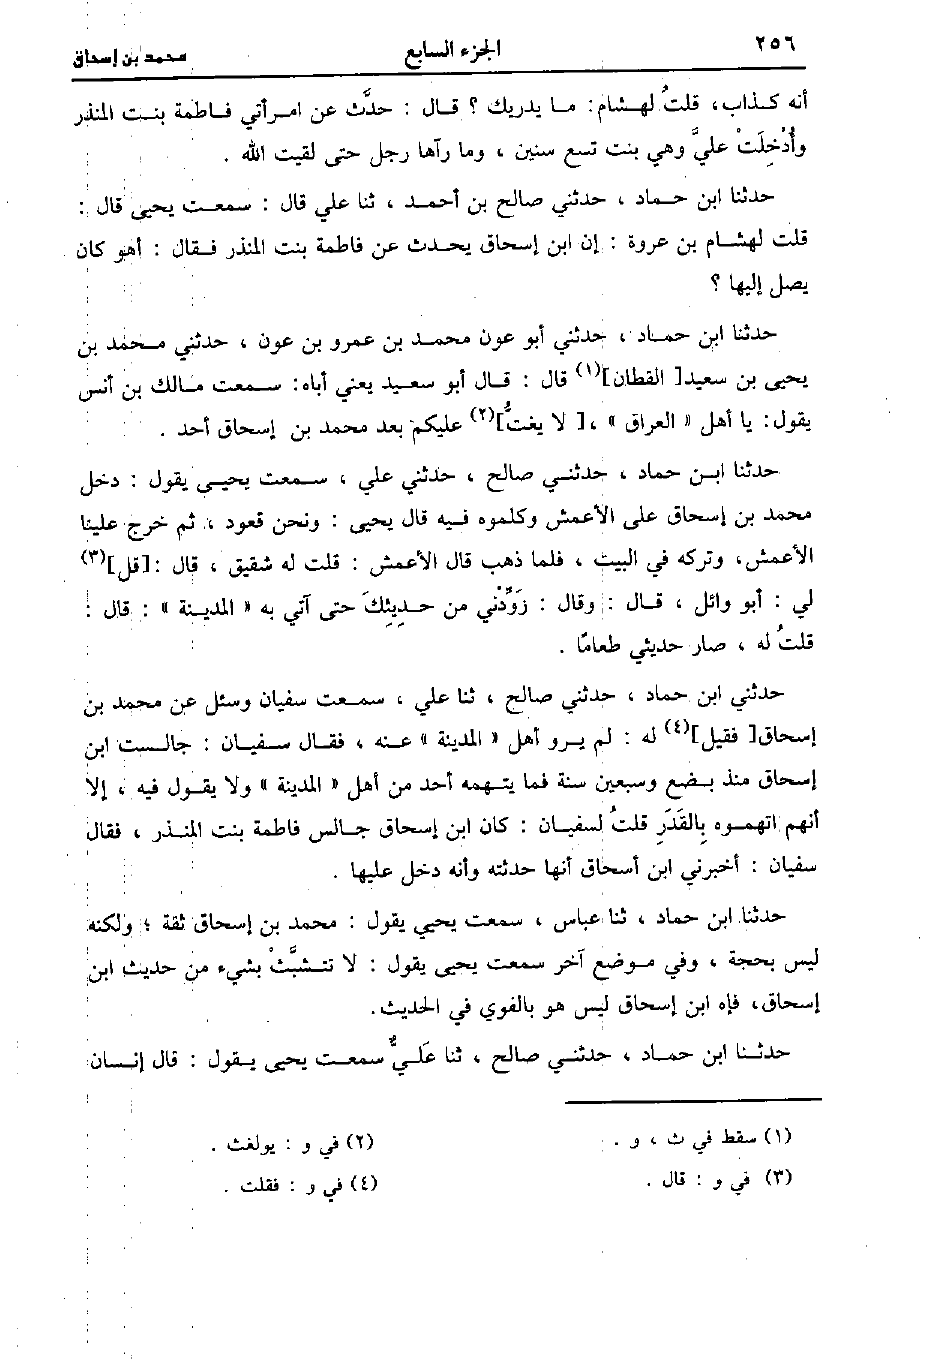 ٢٥٦ الجزء السابع محمد بن إسحاق
أنه كذاب، قلتُ لهشام: ما يدريك ؟ قال : حدَّث عن امرأتي فاطمة بنت المنذر
وأُدْخِلَتْ عليَّ وهي بنت تسع سنين ، وما رآها رجل حتى لقيت الله .
حدثنا ابن حماد ، حدثني صالح بن أحمد ، ثنا علي قال : سمعت يحيى قال :
قلت لهشام بن عروة : إن ابن إسحاق يحدث عن فاطمة بنت المنذر فقال : أهو كان
يصل إليها ؟
حدثنا ابن حماد ، حدثني أبو عون محمد بن عمرو بن عون ، حدثني محمد بن
يحيى بن سعيد[ القطان](١) قال : قال أبو سعيد يعني أباه: سمعت مالك بن أنس
يقول: يا أهل « العراق » ،[ لا يغتُّ](٢) عليكم بعد محمد بن إسحاق أحد .
حدثنا ابن حماد ، حدثني صالح ، حدثني علي ، سمعت يحيى يقول : دخل
محمد بن إسحاق على الأعمش وكلموه فيه قال يحيى : ونحن قعود ، ثم خرج علينا
الأعمش، وتركه في البيت ، فلما ذهب قال الأعمش : قلت له شقيق ، قال :[قل](٣)
لي : أبو وائل ، قال : وقال : زَوِّدْني من حديثِكَ حتى آتي به « المدينة » : قال :
قلتُ له ، صار حديثي طعامًا .
حدثني ابن حماد ، حدثني صالح ، ثنا علي ، سمعت سفيان وسئل عن محمد بن
إسحاق[ فقيل](٤) له : لم يرو أهل « المدينة » عنه ، فقال سفيان : جالست ابن
إسحاق منذ بضع وسبعين سنة فما يتهمه أحد من أهل « المدينة » ولا يقول فيه ، إلا
أنهم اتهموه بِالقَدَرِ قلتُ لسفيان : كان ابن إسحاق جالس فاطمة بنت المنذر ، فقال
سفيان : أخبرني ابن أسحاق أنها حدثته وأنه دخل عليها .
حدثنا ابن حماد ، ثنا عباس ، سمعت يحيى يقول : محمد بن إسحاق ثقة ؛ ولكنه
ليس بحجة ، وفي موضع آخر سمعت يحيى يقول : لا تتشبَّثْ بشيء من حديث ابن
إسحاق، فإه ابن إسحاق ليس هو بالقوي في الحديث.
حدثنا ابن حماد ، حدثني صالح ، ثنا عَلَيٌّ سمعت يحيى يقول : قال إنسان
(١) سقط في ث ، و . (٢) في و : يولغث .
(٣) في و : قال . (٤) في و : فقلت .